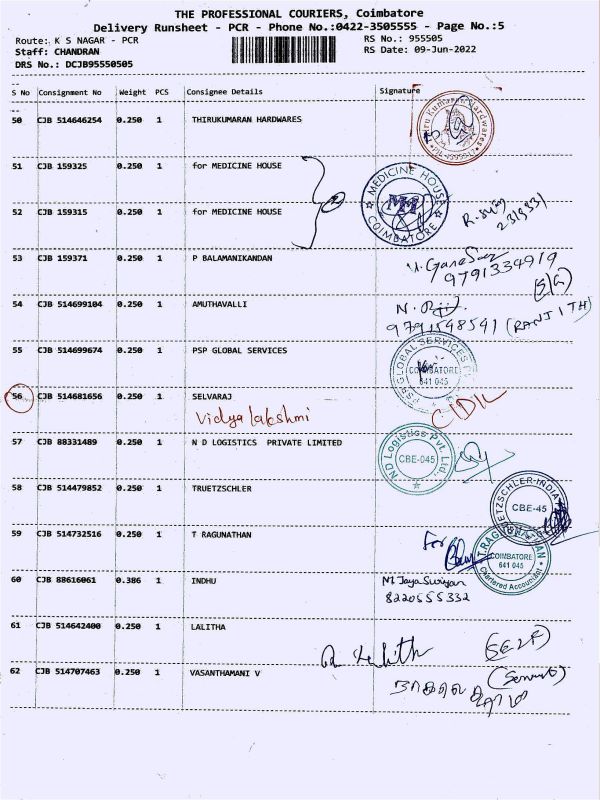 THE PROFESSIONAL COURIERS, Coimbatore
Delivery Runsheet - PCR - Phone No.:0422-3505555 - Page No.:5
Route: K S NAGAR - PCR RS No.: 955505
Staff: CHANDRAN RS Date: 09-Jun-2022
DRS No.: DCJB95550505
S No Consignment No Weight PCS Consignee Details Signature
50 CJB 514646254 0.250 1 THIRUKUMARAN HARDWARES
51 CJB 159325 0.250 1 for MEDICINE HOUSE
MEDICINE HOUSE
COIMBATORE
52 CJB 159315 0.250 1 for MEDICINE HOUSE
53 CJB 159371 0.250 1 P BALAMANIKANDAN
9791334919
54 CJB 514699104 0.250 1 AMUTHAVALLI
(RANJITH)
55 CJB 514699674 0.250 1 PSP GLOBAL SERVICES
COIMBATORE
641 045
56 CJB 514681656 0.250 1 SELVARAJ
Vidya lakshmi
57 CJB 88331489 0.250 1 N D LOGISTICS PRIVATE LIMITED
ND Logistics Pvt. Ltd.
CBE-045
58 CJB 514479852 0.250 1 TRUETZSCHLER
TRUETZSCHLER-INDIA
CBE-45
59 CJB 514732516 0.250 1 T RAGUNATHAN
For
COIMBATORE
641 045
Chartered Accountant
60 CJB 88616061 0.386 1 INDHU
8220555332
61 CJB 514642400 0.250 1 LALITHA
(SELF)
62 CJB 514707463 0.250 1 VASANTHAMANI V